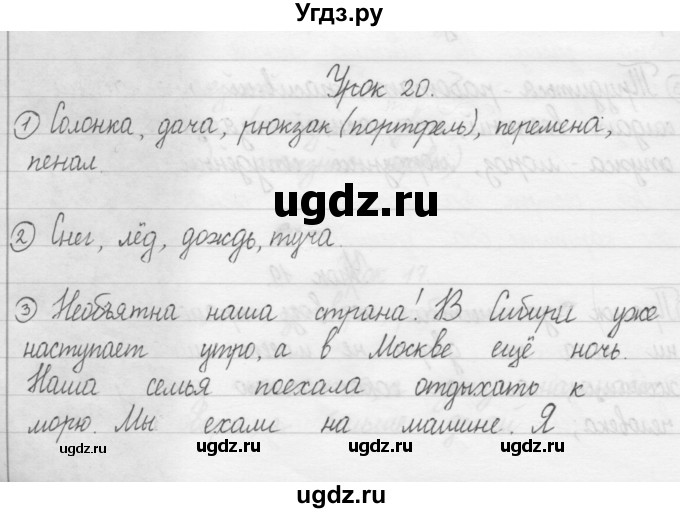 Угдз.ру
Урок 20.
① Солонка, дача, рюкзак (портфель), перемена,
пенал.
ugdz.ru
② Снег, лёд, дождь, туча.
③ Необъятна наша страна! В Сибири уже
наступает утро, а в Москве ещё ночь.
Наша семья поехала отдыхать к
морю. Мы ехали на машине. Я
ugdz.ru ugdz.ru ugdz.ru ugdz.ru
ugdz.ru